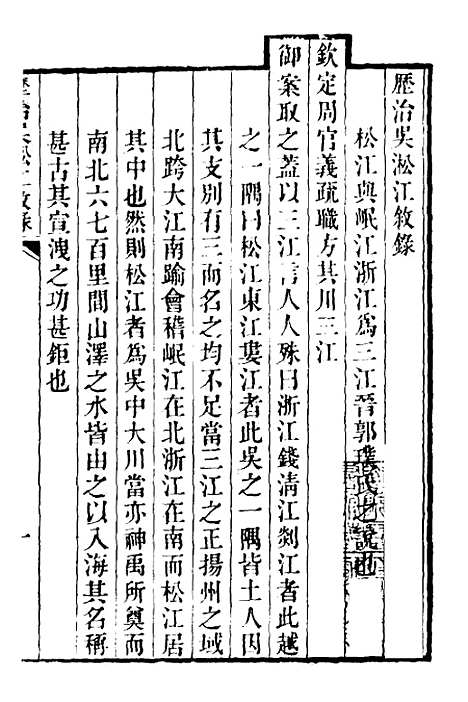 歷治吳淞江敘錄
松江與岷江浙江爲三江晉郭璞氏之說也
欽定周官義疏職方其川三江
御案取之蓋以三江言人人殊曰浙江錢淸江剡江者此越
之一隅曰松江東江婁江者此吳之一隅皆土人因
其支別有三而名之均不足當三江之正揚州之域
北跨大江南踰會稽岷江在北浙江在南而松江居
其中也然則松江者爲吳中大川當亦神禹所奠而
南北六七百里間山澤之水皆由之以入海其名稱
甚古其宣洩之功甚鉅也
一